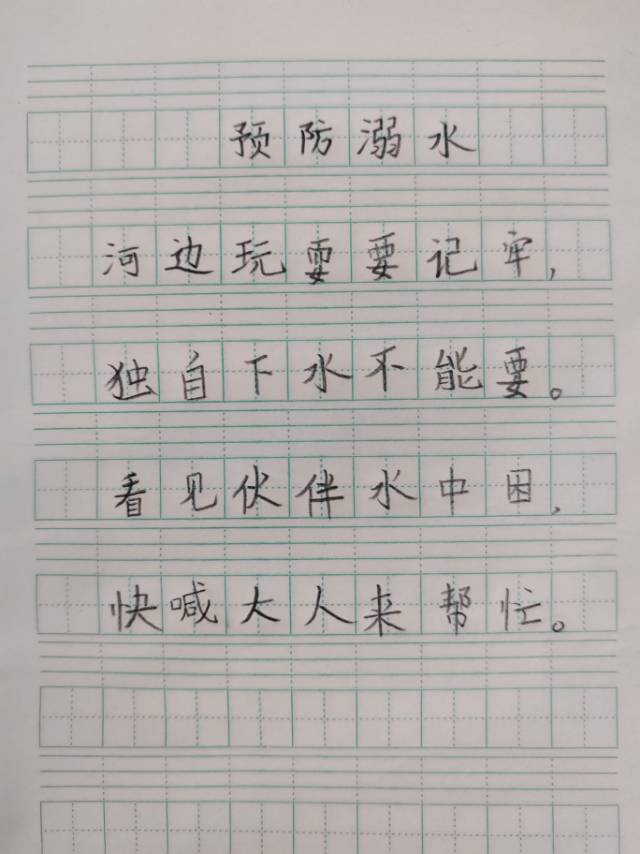 预防溺水
河边玩耍要记牢,
独自下水不能要。
看见伙伴水中困,
快喊大人来帮忙。